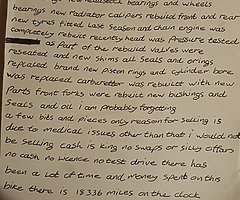 bearings new headstock bearings and wheels
bearings new radiator calipers rebuilt front and rear
new tyres fitted last season and chant engine was
completely rebuilt recently head was pressure tested
as part of the rebuild valves were
reseated and new shims all seals and orings
replaced brand new piston rings and cylinder bore
was replaced carburettor was rebuilt with new
parts front forks were rebuilt new bushings and
seals and oil i am probably forgetting
a few bits and pieces only reason for selling is
due to medical issues other than that i would not
be selling cash is king no swaps or silly offers
no cash no licence no test drive there has
been a lot of time and money spent on this
bike there is 18336 miles on the clock